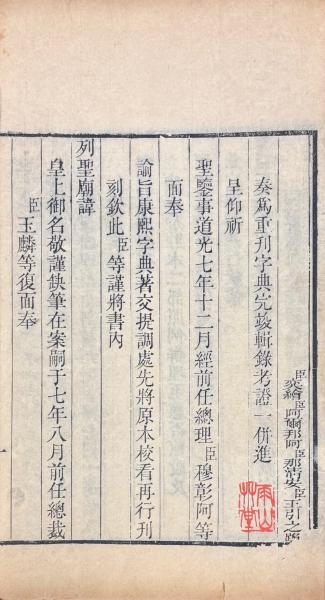 臣奕繪臣阿爾邦阿臣那清安臣王引之跪
奏爲重刊字典完竣輯錄考證一併進
呈仰祈
聖鑒事道光七年十二月經前任總理臣穆彰阿等
面奉
諭旨康熙字典著交提調處先將原本校看再行刊
刻欽此臣等謹將書內
列聖廟諱
皇上御名敬謹缺筆在案嗣于七年八月前任總裁
臣玉麟等復面奉
一